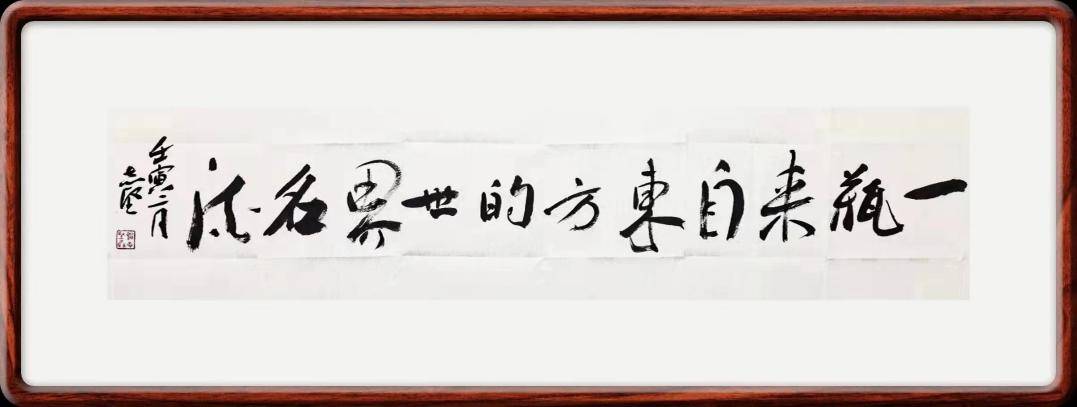 一瓶来自東方的世界名酒
壬寅二月